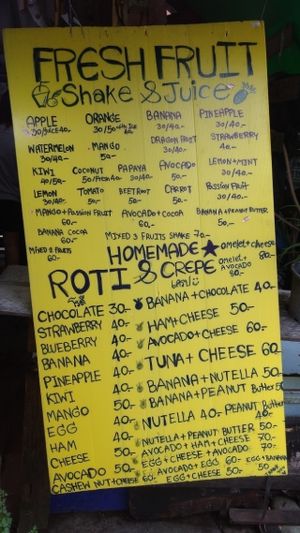 FRESH FRUIT
Shake & Juice
APPLE ORANGE BANANA PINEAPPLE
30/40.- 30/40.-
WATERMELON MANGO DRAGON FRUIT STRAWBERRY
30/40.- 50.- 30/40.- 40.-
KIWI COCONUT PAPAYA AVOCADO LEMON+MINT
40/50.- 30/40.- 50.- 30/40.-
LEMON TOMATO BEETROOT CARROT PASSION FRUIT
30/40.- 50.- 50.- 50.- 30/40.-
MANGO+PASSION FRUIT AVOCADO+COCOA BANANA+PEANUT BUTTER
60.- 60.- 50.-
BANANA COCOA
60.-
MIXED 2 FRUITS MIXED 3 FRUITS SHAKE 70.-
60.-
HOMEMADE omelet+cheese
80.-
ROTI & CREPE omelet+
AVOCADO
80.-
CHOCOLATE 30.- BANANA+CHOCOLATE 40.-
STRAWBERRY 40.- HAM+CHEESE 50.-
BLUEBERRY 40.- AVOCADO+CHEESE 60.-
BANANA 40.- TUNA+CHEESE 60.-
PINEAPPLE 40.- BANANA+NUTELLA 50.-
KIWI 50.- BANANA+PEANUT Butter 50.-
MANGO 50.- NUTELLA 40.- PEANUT Butter 40.-
EGG 40.- NUTELLA+PEANUT BUTTER 50.-
HAM 40.- AVOCADO+HAM+CHEESE 70.-
CHEESE 50.- EGG+CHEESE+AVOCADO 70.-
AVOCADO 50.- AVOCADO+EGG 60.- EGG+BANANA
CASHEW NUT+CHEESE 60.- EGG+CHEESE 50.- 50